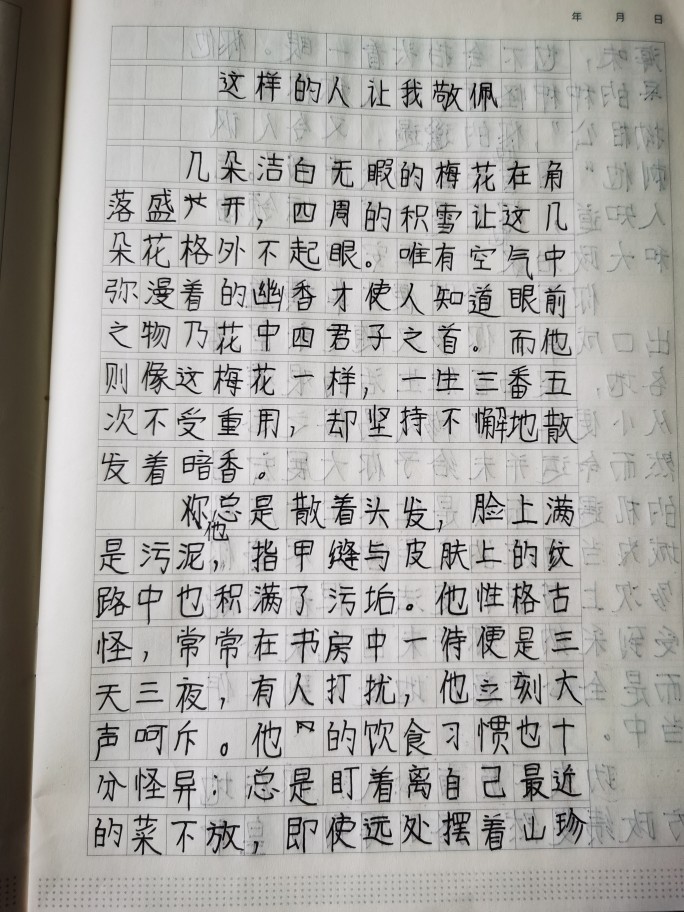 年 月 日
这样的人让我敬佩
几朵洁白无暇的梅花在角
落盛开，四周的积雪让这几
朵花格外不起眼。唯有空气中
弥漫着的幽香才使人知道眼前
之物乃花中四君子之首。而他
则像这梅花一样，一生三番五
次不受重用，却坚持不懈地散
发着暗香。
他总是散着头发，脸上满
是污泥，指甲缝与皮肤上的纹
路中也积满了污垢。他性格古
怪，常常在书房中一待便是三
天三夜，有人打扰，他立刻大
声呵斥。他的饮食习惯也十
分怪异：总是盯着离自己最近
的菜不放，即使远处摆着山珍